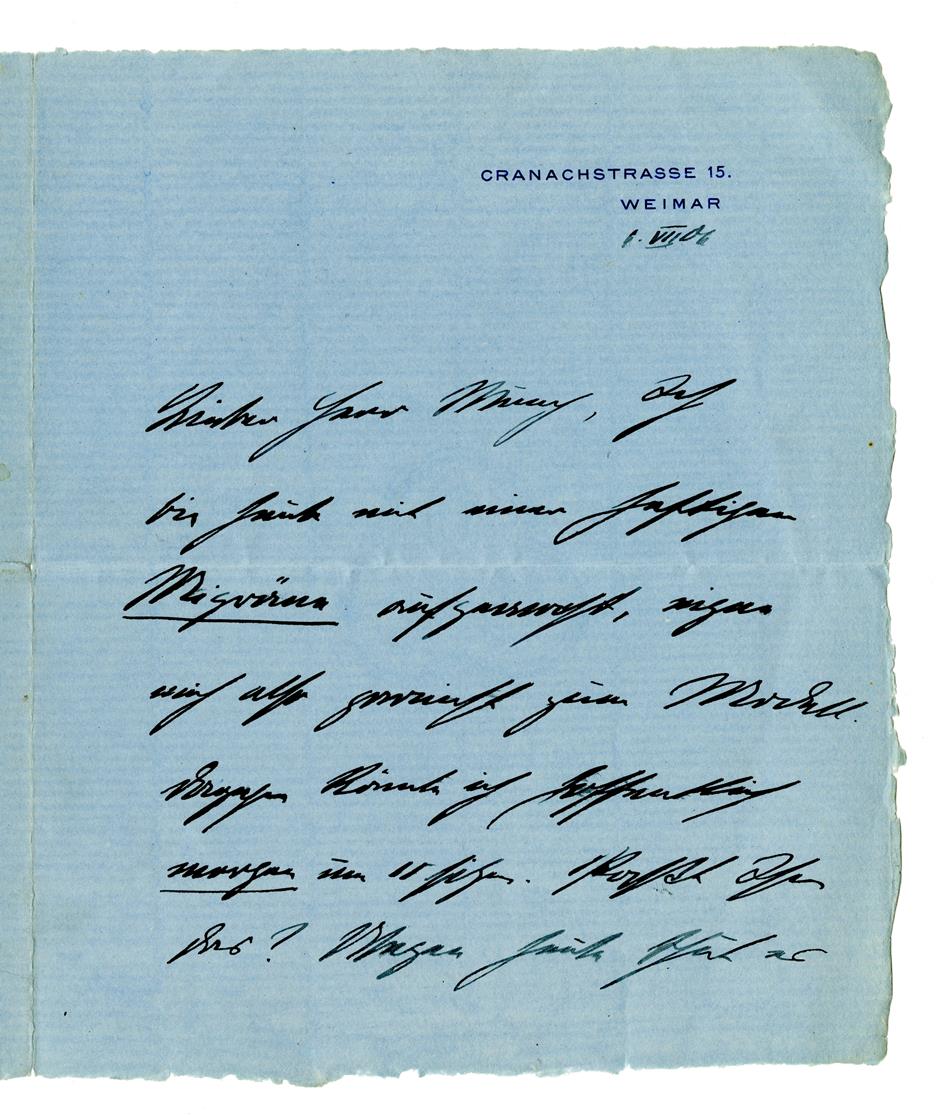 CRANACHSTRASSE 15.
WEIMAR
6. VII 06
Lieber Herr Munch, Ich
bin heute mit einer heftigen
Migräne aufgewacht, eigne
mich also garnicht zum Modell.
Dagegen könnte ich hoffentlich
morgen um 11 sitzen. Paßt Ihnen
das? Wegen heute